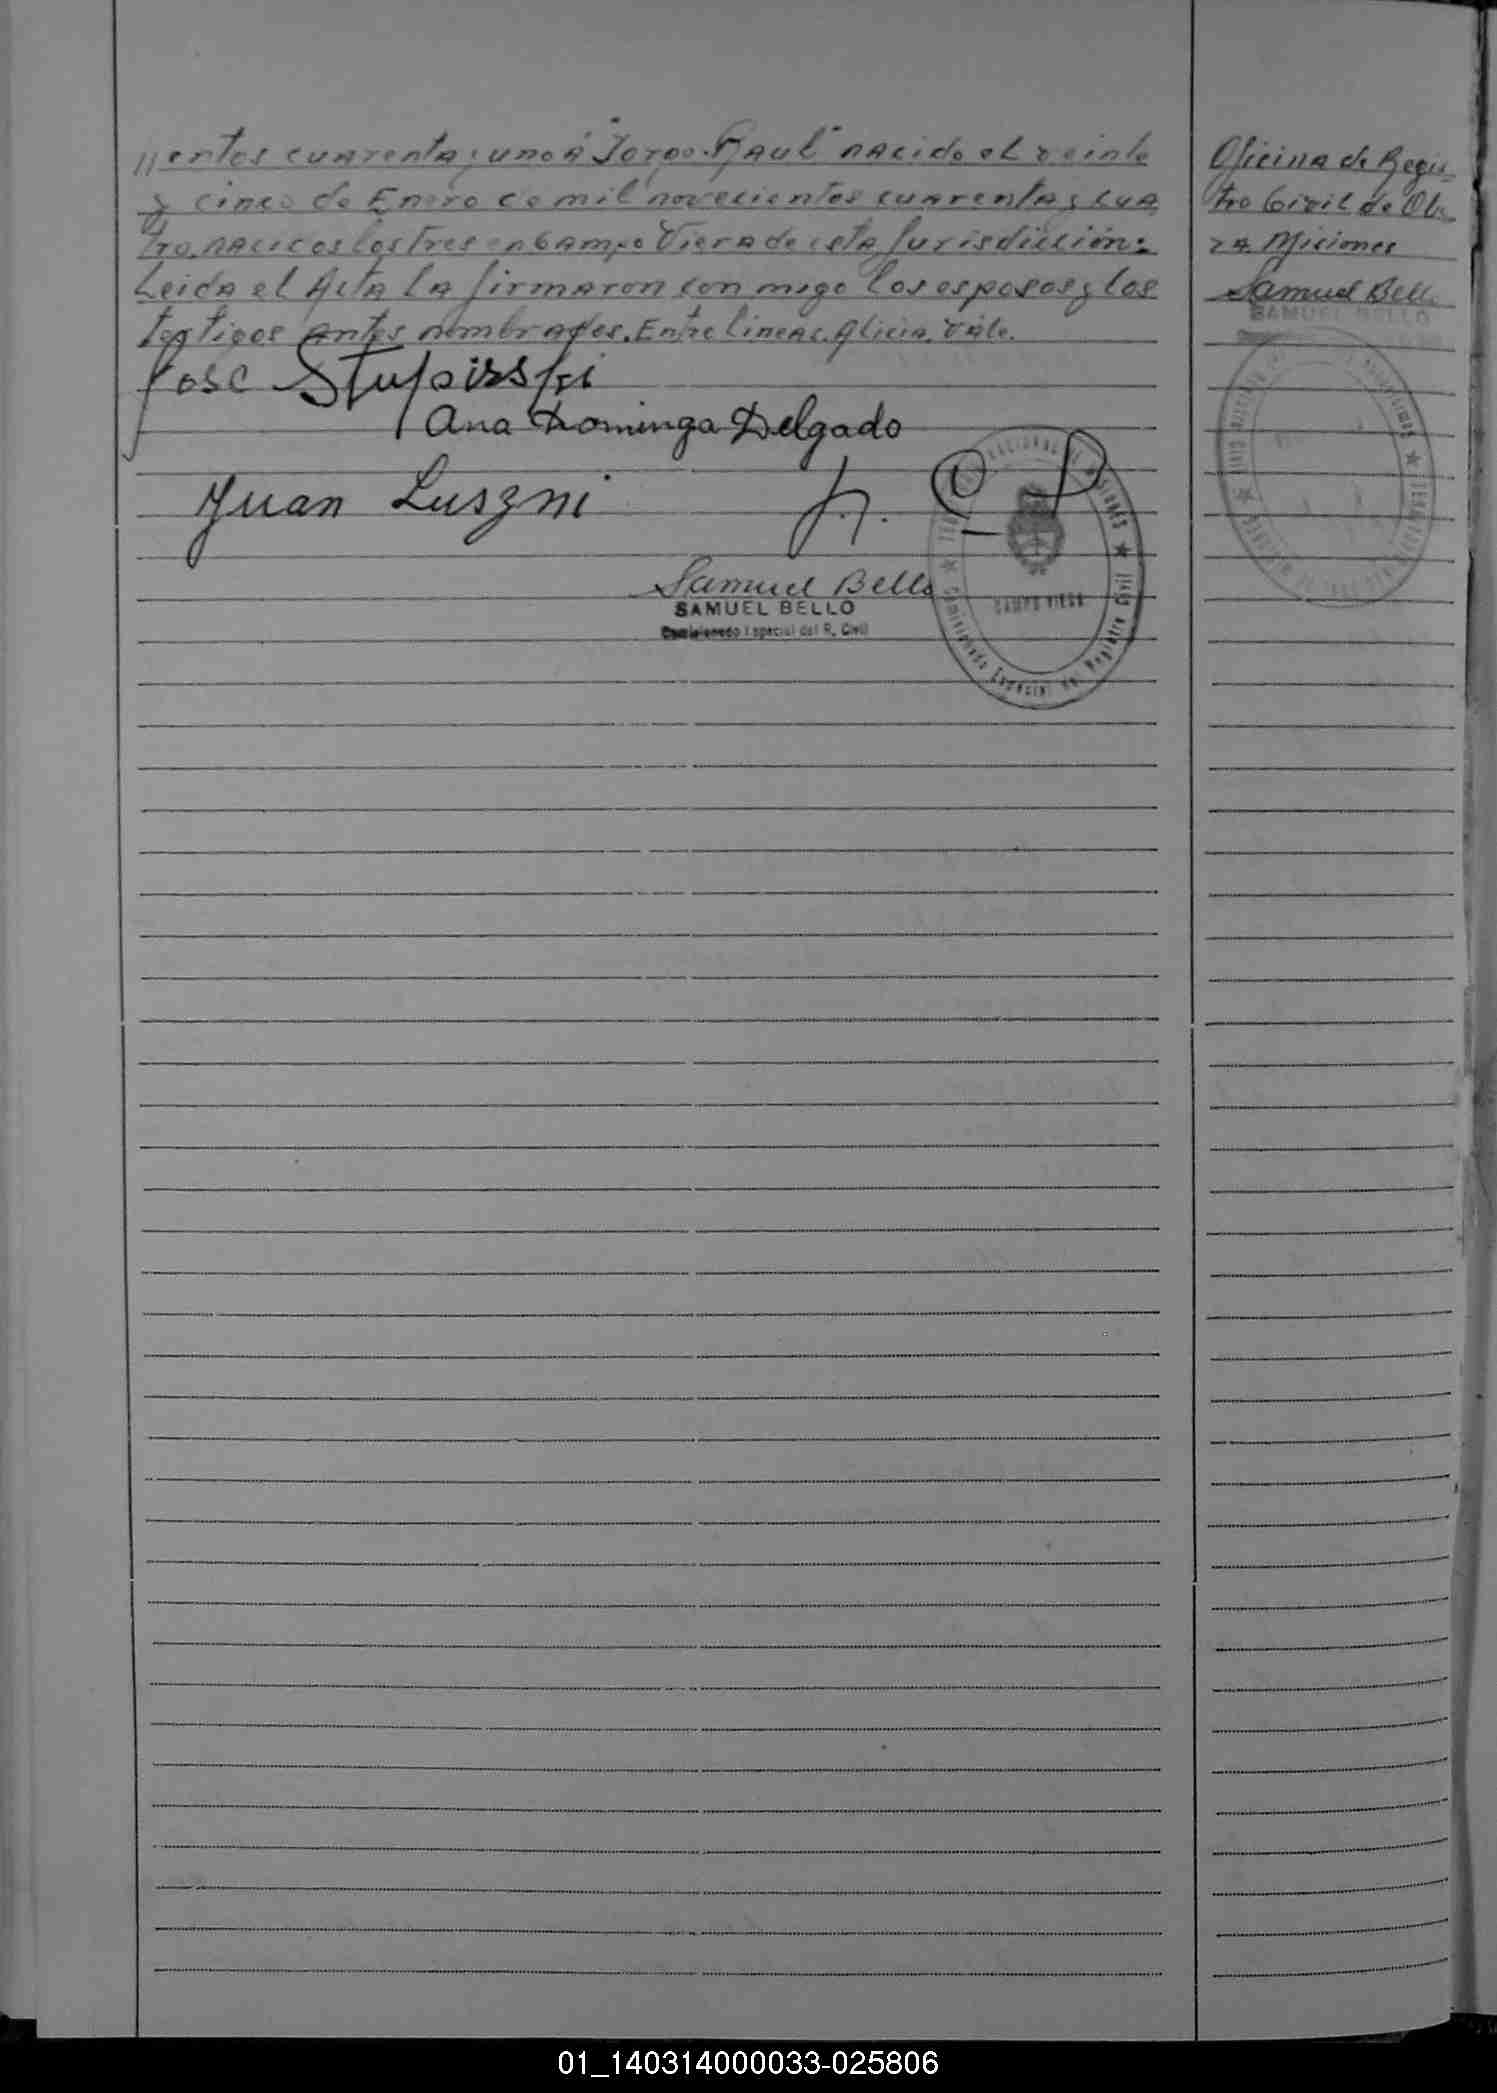 //entos cuarenta y uno á "Jorge Raul" nacido el veinte
y cinco de Enero de mil novecientos cuarenta y cua
tro, nacidos los tres en Campo Viera de esta Jurisdicción:
Leida el Acta la firmaron con migo los esposos y los
testigos antes nombrados. Entre lineas. Alicia. Vale.
Jose Stupisski
Ana Dominga Delgado
Juan Luszni
Samuel Bello
SAMUEL BELLO
Comisionado Especial del R. Civil
CAMPO VIERA
Comisionado Especial del Registro Civil
Oficina de Regis-
tro Civil de Obe-
ra Misiones
Samuel Bello
SAMUEL BELLO
01_140314000033-025806